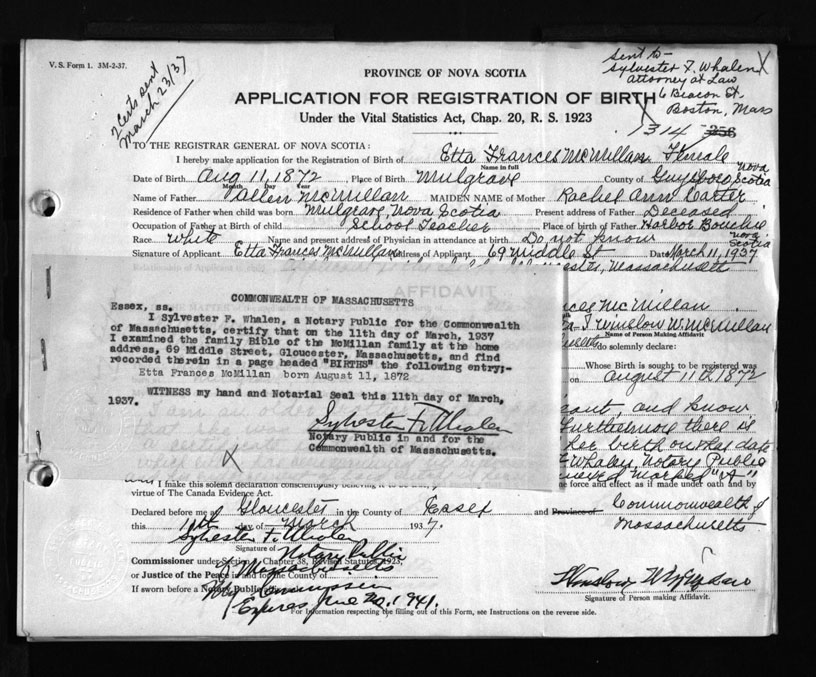 V. S. Form 1. 3M-2-37.
2 Certs sent
March 23/37
Sent to-
Sylvester F. Whalen X
Attorney at Law
6 Beacon St.
Boston, Mass
PROVINCE OF NOVA SCOTIA
APPLICATION FOR REGISTRATION OF BIRTH
Under the Vital Statistics Act, Chap. 20, R. S. 1923
1314
TO THE REGISTRAR GENERAL OF NOVA SCOTIA:
I hereby make application for the Registration of Birth of Etta Frances McMillan Female
Name in full
Date of Birth Aug 11, 1872, Place of Birth Mulgrave County of Guysboro Nova Scotia
Month Day Year
Name of Father Allen McMillan MAIDEN NAME of Mother Rachel Ann Carter
Residence of Father when child was born Mulgrave, Nova Scotia Present address of Father Deceased
Occupation of Father at Birth of child School Teacher Place of birth of Father Harbor Bouchie Nova Scotia
Race White Name and present address of Physician in attendance at birth Do not know
Signature of Applicant Etta Frances McMillan Address of Applicant 69 Middle St Date March 11, 1937
Gloucester, Massachusetts
AFFIDAVIT
COMMONWEALTH OF MASSACHUSETTS
Essex, ss.
I Sylvester F. Whalen, a Notary Public for the Commonwealth
of Massachusetts, certify that on the 11th day of March, 1937
I examined the family Bible of the McMillan family at the home
address, 69 Middle Street, Gloucester, Massachusetts, and find
recorded therein in a page headed "BIRTHS" the following entry;-
Etta Frances McMillan born August 11, 1872
WITNESS my hand and Notarial Seal this 11th day of March,
1937.
Sylvester F. Whalen
Notary Public in and for the
Commonwealth of Massachusetts.
X
McMillan
I Winslow W. McMillan
Name of Person Making Affidavit
do solemnly declare:
Whose Birth is sought to be registered was
on August 11th, 1872
and know
Furthermore there is
her birth on that date
Whalen, Notary Public
marked "A"
force and effect as if made under oath and by
I make this solemn declaration conscientiously believing it to be true,
virtue of The Canada Evidence Act.
Declared before me at Gloucester in the County of Essex and Province of Commonwealth of
Massachusetts
this 11th day of March 1937.
Sylvester F. Whalen
Signature of Notary Public
Commissioner under Section Chapter 38, Revised Statutes 1923,
of Massachusetts
or Justice of the Peace in and for the County of
If sworn before a Notary Public
My Commission
Expires June 20, 1941.
Winslow W. McMillan
Signature of Person making Affidavit.
For Information respecting the filling out of this Form, see Instructions on the reverse side.